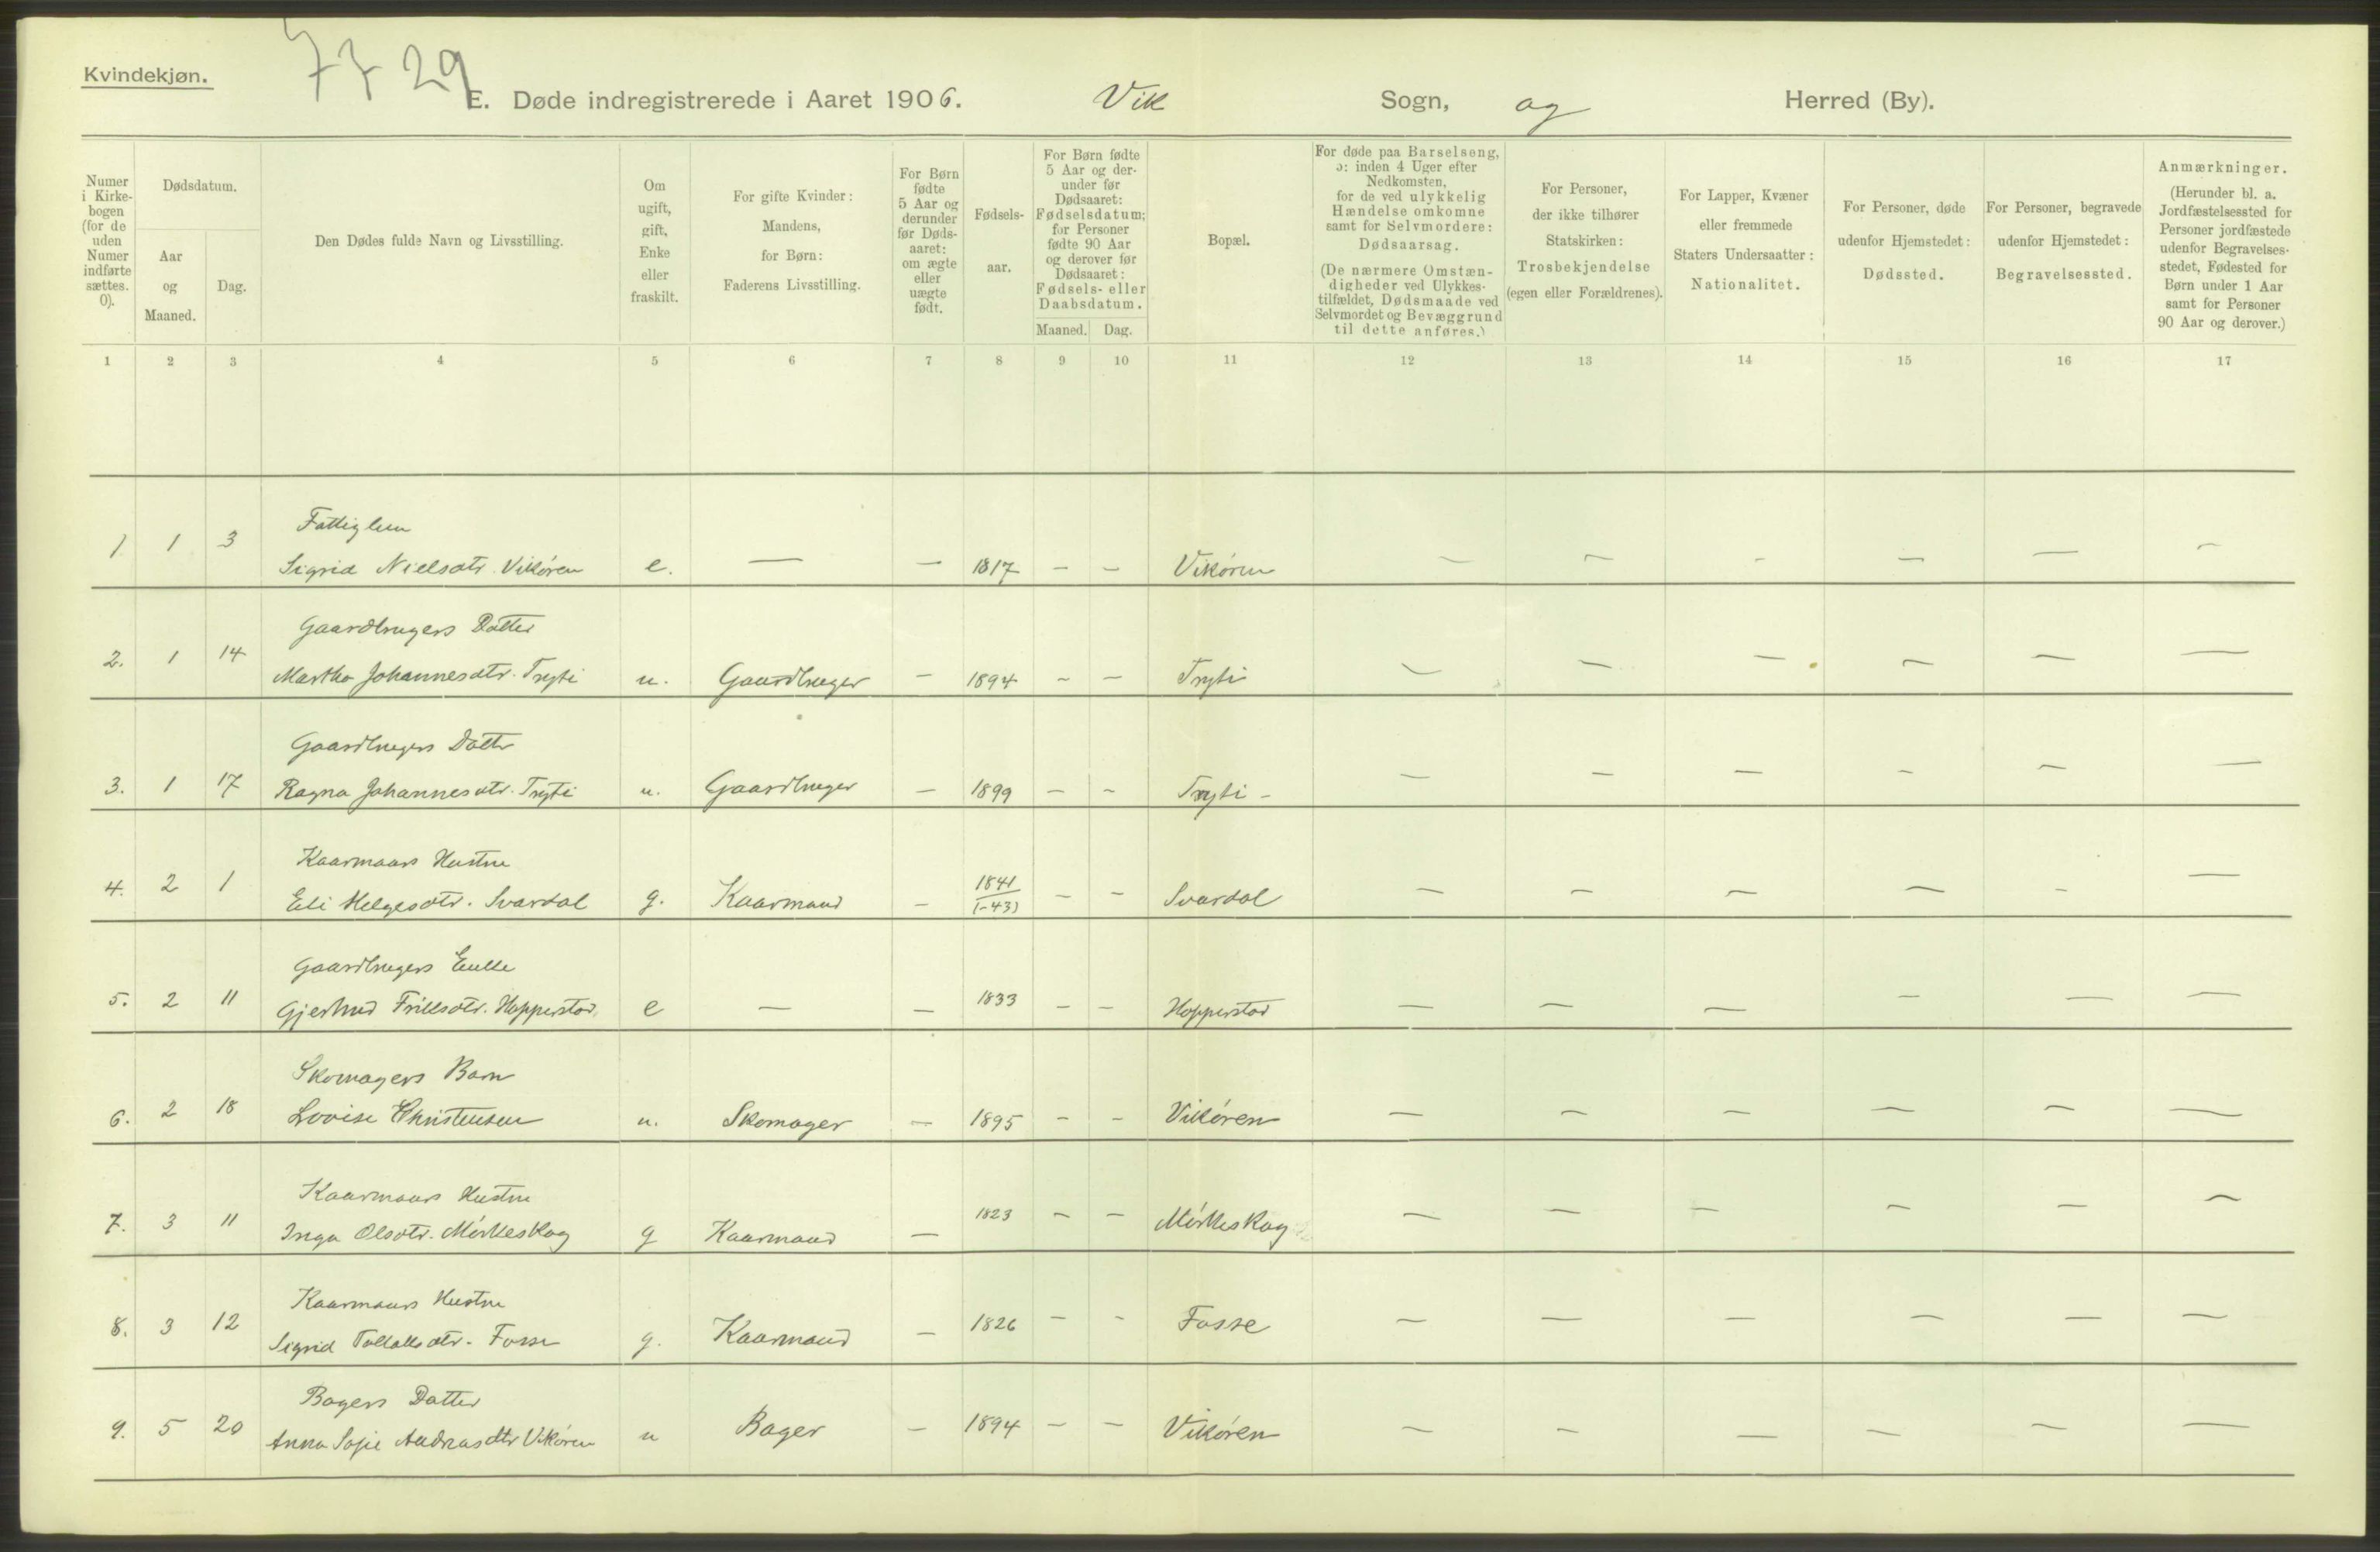 Kvindekjøn.
7729
E. Døde indregistrerede i Aaret 1906. Vik Sogn, og Herred (By).
Numer i Kirkebogen (for de uden Numer indførte sættes. 0).
Dødsdatum.
Aar og Maaned.
Dag.
Den Dødes fulde Navn og Livsstilling.
Om ugift, gift, Enke eller fraskilt.
For gifte Kvinder: Mandens, for Børn: Faderens Livsstilling.
For Børn fødte 5 Aar og derunder før Dødsaaret: om ægte eller uægte født.
Fødselsaar.
For Børn fødte 5 Aar og derunder før Dødsaaret: Fødselsdatum; for Personer fødte 90 Aar og derover før Dødsaaret: Fødsels- eller Daabsdatum.
Maaned. Dag.
Bopæl.
For døde paa Barselseng, ɔ: inden 4 Uger efter Nedkomsten, for de ved ulykkelig Hændelse omkomne samt for Selvmordere: Dødsaarsag.
(De nærmere Omstændigheder ved Ulykkestilfældet, Dødsmaade ved Selvmordet og Bevæggrund til dette anføres.)
For Personer, der ikke tilhører Statskirken: Trosbekjendelse (egen eller Forældrenes).
For Lapper, Kvæner eller fremmede Staters Undersaatter: Nationalitet.
For Personer, døde udenfor Hjemstedet: Dødssted.
For Personer, begravede udenfor Hjemstedet: Begravelsessted.
Anmærkninger.
(Herunder bl. a. Jordfæstelsessted for Personer jordfæstede udenfor Begravelsesstedet, Fødested for Børn under 1 Aar samt for Personer 90 Aar og derover.)
1 2 3 4 5 6 7 8 9 10 11 12 13 14 15 16 17
Fattiglem
1 1 3 Sigrid Nielsdtr. Vikøren e. — — 1817 — — Vikøren — — — — — —
Gaardbrugers Datter
2. 1 14 Martha Johannesdtr. Tryti u. Gaardbruger — 1894 — — Tryti — — — — — —
Gaardbrugers Datter
3. 1 17 Ragna Johannesdtr. Tryti u. Gaardbruger — 1899 — — Tryti — — — — — — —
Kaarmans Hustru
4. 2 1 Eli Helgesdtr. Svardal g. Kaarmand — 1841 (-43) — — Svardal — — — — — —
Gaardbrugers Enke
5. 2 11 Gjertrud Hopperstad e — — 1833 — — Hopperstad — — — — — —
Skomagers Barn
6. 2 18 Lovise Christensen u. Skomager — 1895 — — Vikøren — — — — — —
Kaarmans Hustru
7. 3 11 Inga Olsdtr. Mörkeskog g Kaarmand — 1823 — — Mörkeskog — — — — — —
Kaarmans Hustru
8. 3 12 Sigrid Fosse g. Kaarmand — 1826 — — Fosse — — — — — —
Bagers Datter
9. 5 20 Anna Sofie Andreasdtr Vikøren u Bager — 1894 — — Vikøren — — — — — —